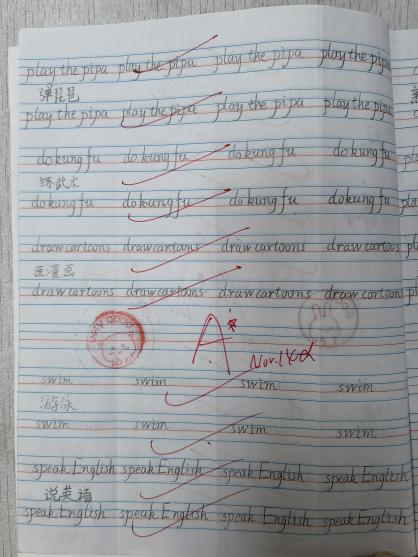 play the pipa play the pipa play the pipa play the pipa
弹琵琶
play the pipa play the pipa play the pipa play the pipa
do kung fu do kung fu do kung fu do kung fu
练武术
do kung fu do kung fu do kung fu do kung fu
draw cartoons draw cartoons draw cartoons draw cartoos
画漫画
draw cartoons draw cartoons draw cartoons draw cartoons
very good
A*
swim swim swim swim
游泳
swim swim swim swim
speak English speak English speak English speak English
说英语
speak English speak English speak English speak English